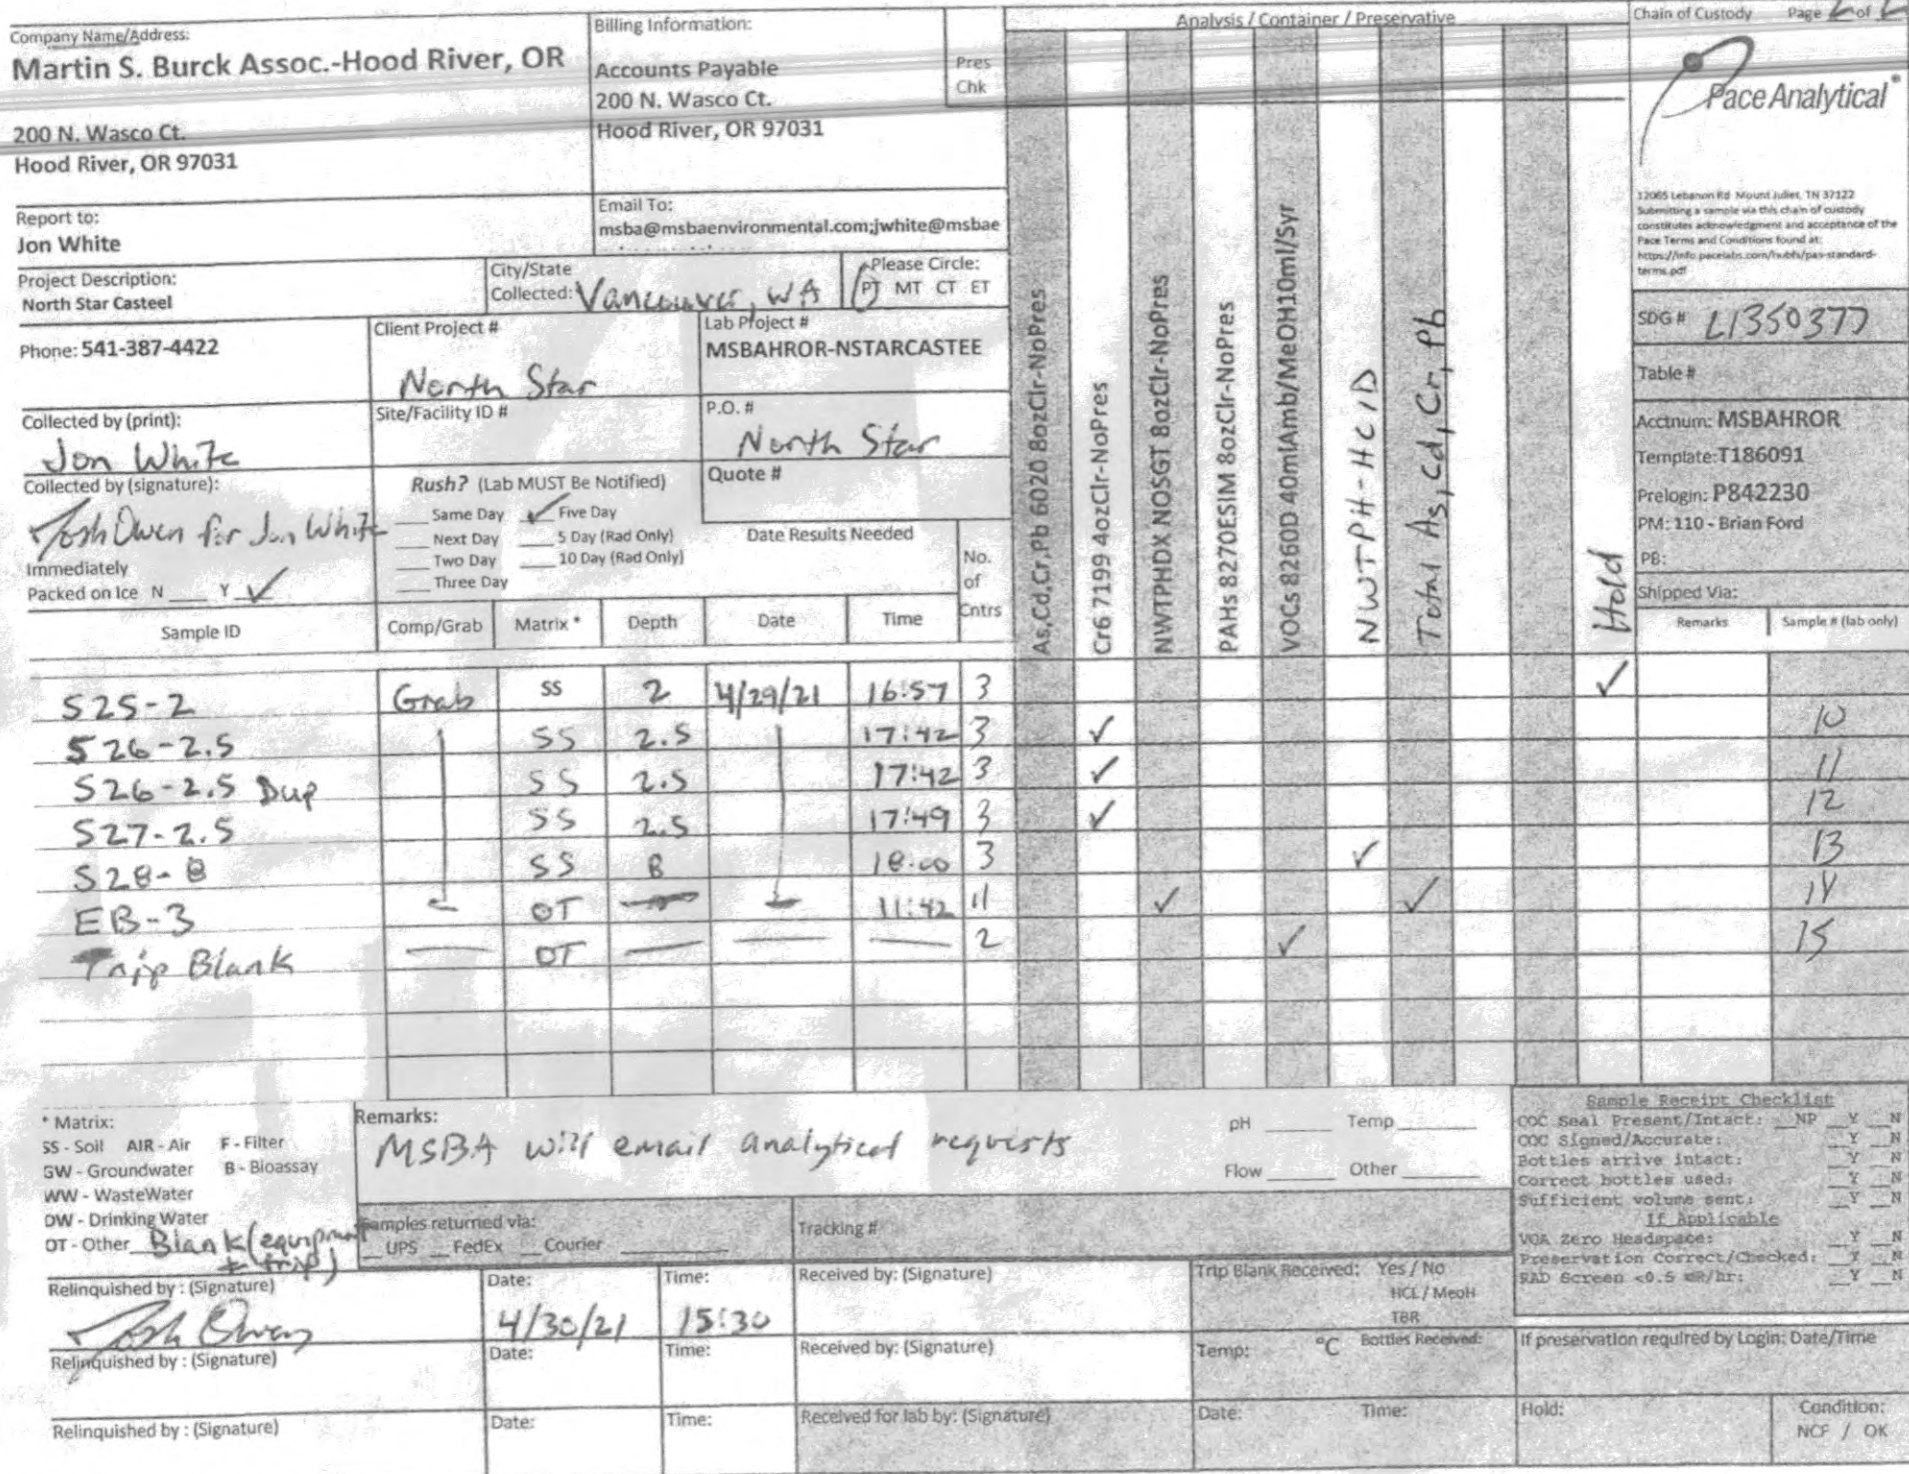 Company Name/Address:
Martin S. Burck Assoc.-Hood River, OR
200 N. Wasco Ct.
Hood River, OR 97031
Billing Information:
Accounts Payable
200 N. Wasco Ct.
Hood River, OR 97031
Pres
Chk
Analysis / Container / Preservative
Chain of Custody Page 2 of 2
Pace Analytical®
12065 Lebanon Rd Mount Juliet, TN 37122
Submitting a sample via this chain of custody
constitutes acknowledgment and acceptance of the
Pace Terms and Conditions found at:
https://info.pacelabs.com/hubfs/pas-standard-
terms.pdf
Report to:
Jon White
Email To:
msba@msbaenvironmental.com;jwhite@msbae
Project Description:
North Star Casteel
City/State
Collected: Vancouver, WA
Please Circle:
PT MT CT ET
Phone: 541-387-4422
Client Project #
North Star
Lab Project #
MSBAHROR-NSTARCASTEE
Collected by (print):
Jon White
Site/Facility ID #
P.O. #
North Star
Collected by (signature):
Josh Owen for Jon White
Rush? (Lab MUST Be Notified)
___ Same Day ✓ Five Day
___ Next Day ___ 5 Day (Rad Only)
___ Two Day ___ 10 Day (Rad Only)
___ Three Day
Quote #
Date Results Needed
Immediately
Packed on Ice N ___ Y ✓
No.
of
Cntrs
As,Cd,Cr,Pb 6020 8ozClr-NoPres
Cr6 7199 4ozClr-NoPres
NWTPHDX NOSGT 8ozClr-NoPres
PAHs 8270ESIM 8ozClr-NoPres
VOCs 8260D 40mlAmb/MeOH10ml/Syr
NWTPH-HCID
Total As, Cd, Cr, Pb
Hold
SDG # L1350377
Table #
Acctnum: MSBAHROR
Template:T186091
Prelogin: P842230
PM: 110 - Brian Ford
PB:
Shipped Via:
Remarks Sample # (lab only)
Sample ID Comp/Grab Matrix * Depth Date Time
S25-2 Grab SS 2 4/29/21 16:57 3 ✓
S26-2.5 SS 2.5 17:42 3 ✓ 10
S26-2.5 Dup SS 2.5 17:42 3 ✓ 11
S27-2.5 SS 2.5 17:49 3 ✓ 12
S28-8 SS 8 18:00 3 ✓ 13
EB-3 OT 11:42 11 ✓ ✓ 14
Trip Blank — OT — — — 2 ✓ 15
* Matrix:
SS - Soil AIR - Air F - Filter
GW - Groundwater B - Bioassay
WW - WasteWater
DW - Drinking Water
OT - Other Blank (equipment
± trip)
Remarks:
MSBA will email analytical requests
pH ___ Temp ___
Flow ___ Other ___
Samples returned via:
__ UPS __ FedEx __ Courier ___
Tracking #
Sample Receipt Checklist
COC Seal Present/Intact: __NP __Y __N
COC Signed/Accurate: __Y __N
Bottles arrive intact: __Y __N
Correct bottles used: __Y __N
Sufficient volume sent: __Y __N
If Applicable
VOA Zero Headspace: __Y __N
Preservation Correct/Checked: __Y __N
RAD Screen <0.5 mR/hr: __Y __N
Relinquished by : (Signature)
Josh Owen
Date:
4/30/21
Time:
15:30
Received by: (Signature)
Trip Blank Received: Yes / No
HCL / MeoH
TBR
Relinquished by : (Signature)
Date:
Time:
Received by: (Signature)
Temp: °C Bottles Received:
If preservation required by Login: Date/Time
Relinquished by : (Signature)
Date:
Time:
Received for lab by: (Signature)
Date: Time:
Hold:
Condition:
NCF / OK